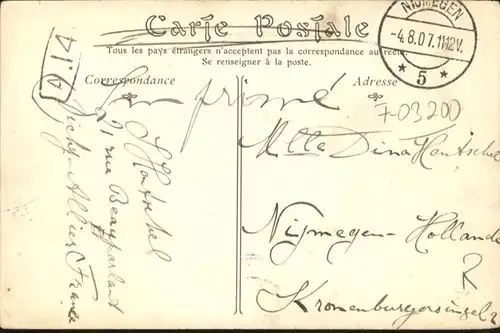 Carte Postale
Tous les pays étrangers n'acceptent pas la correspondance au recto
Se renseigner à la poste.
Correspondance
Adresse
NIJMEGEN
-4.8.07.11-12V.
* 5 *
imprimé
7-03200
Mlle Dina Hentschel
Nijmegen-Hollande
Kronenburgersingel 2
S Hentschel
21 rue Beauparlant
Vichy Allier France